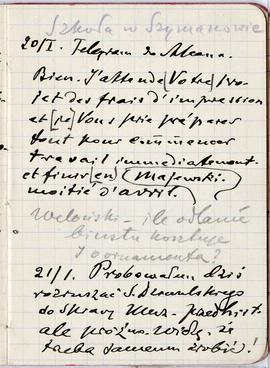 Szkoła w Szymanowie
20/I. Telegram do Alcana.
Bien. J'attends [Votre] pro-
jet des frais d'impression
et [je] Vous prie préparer
tout pour commencer
travail immediatement
et finir [en] Majewski-
moitié d'avril.
Weloński - ile odlanie
biustu kosztuje
i ornamenta?
21/I. Próbowałem dziś
rozruszać S. Dzewulskiego
do sprawy Muz. przedhist.
ale próżno. Widzę, że
trzeba samemu zrobić!